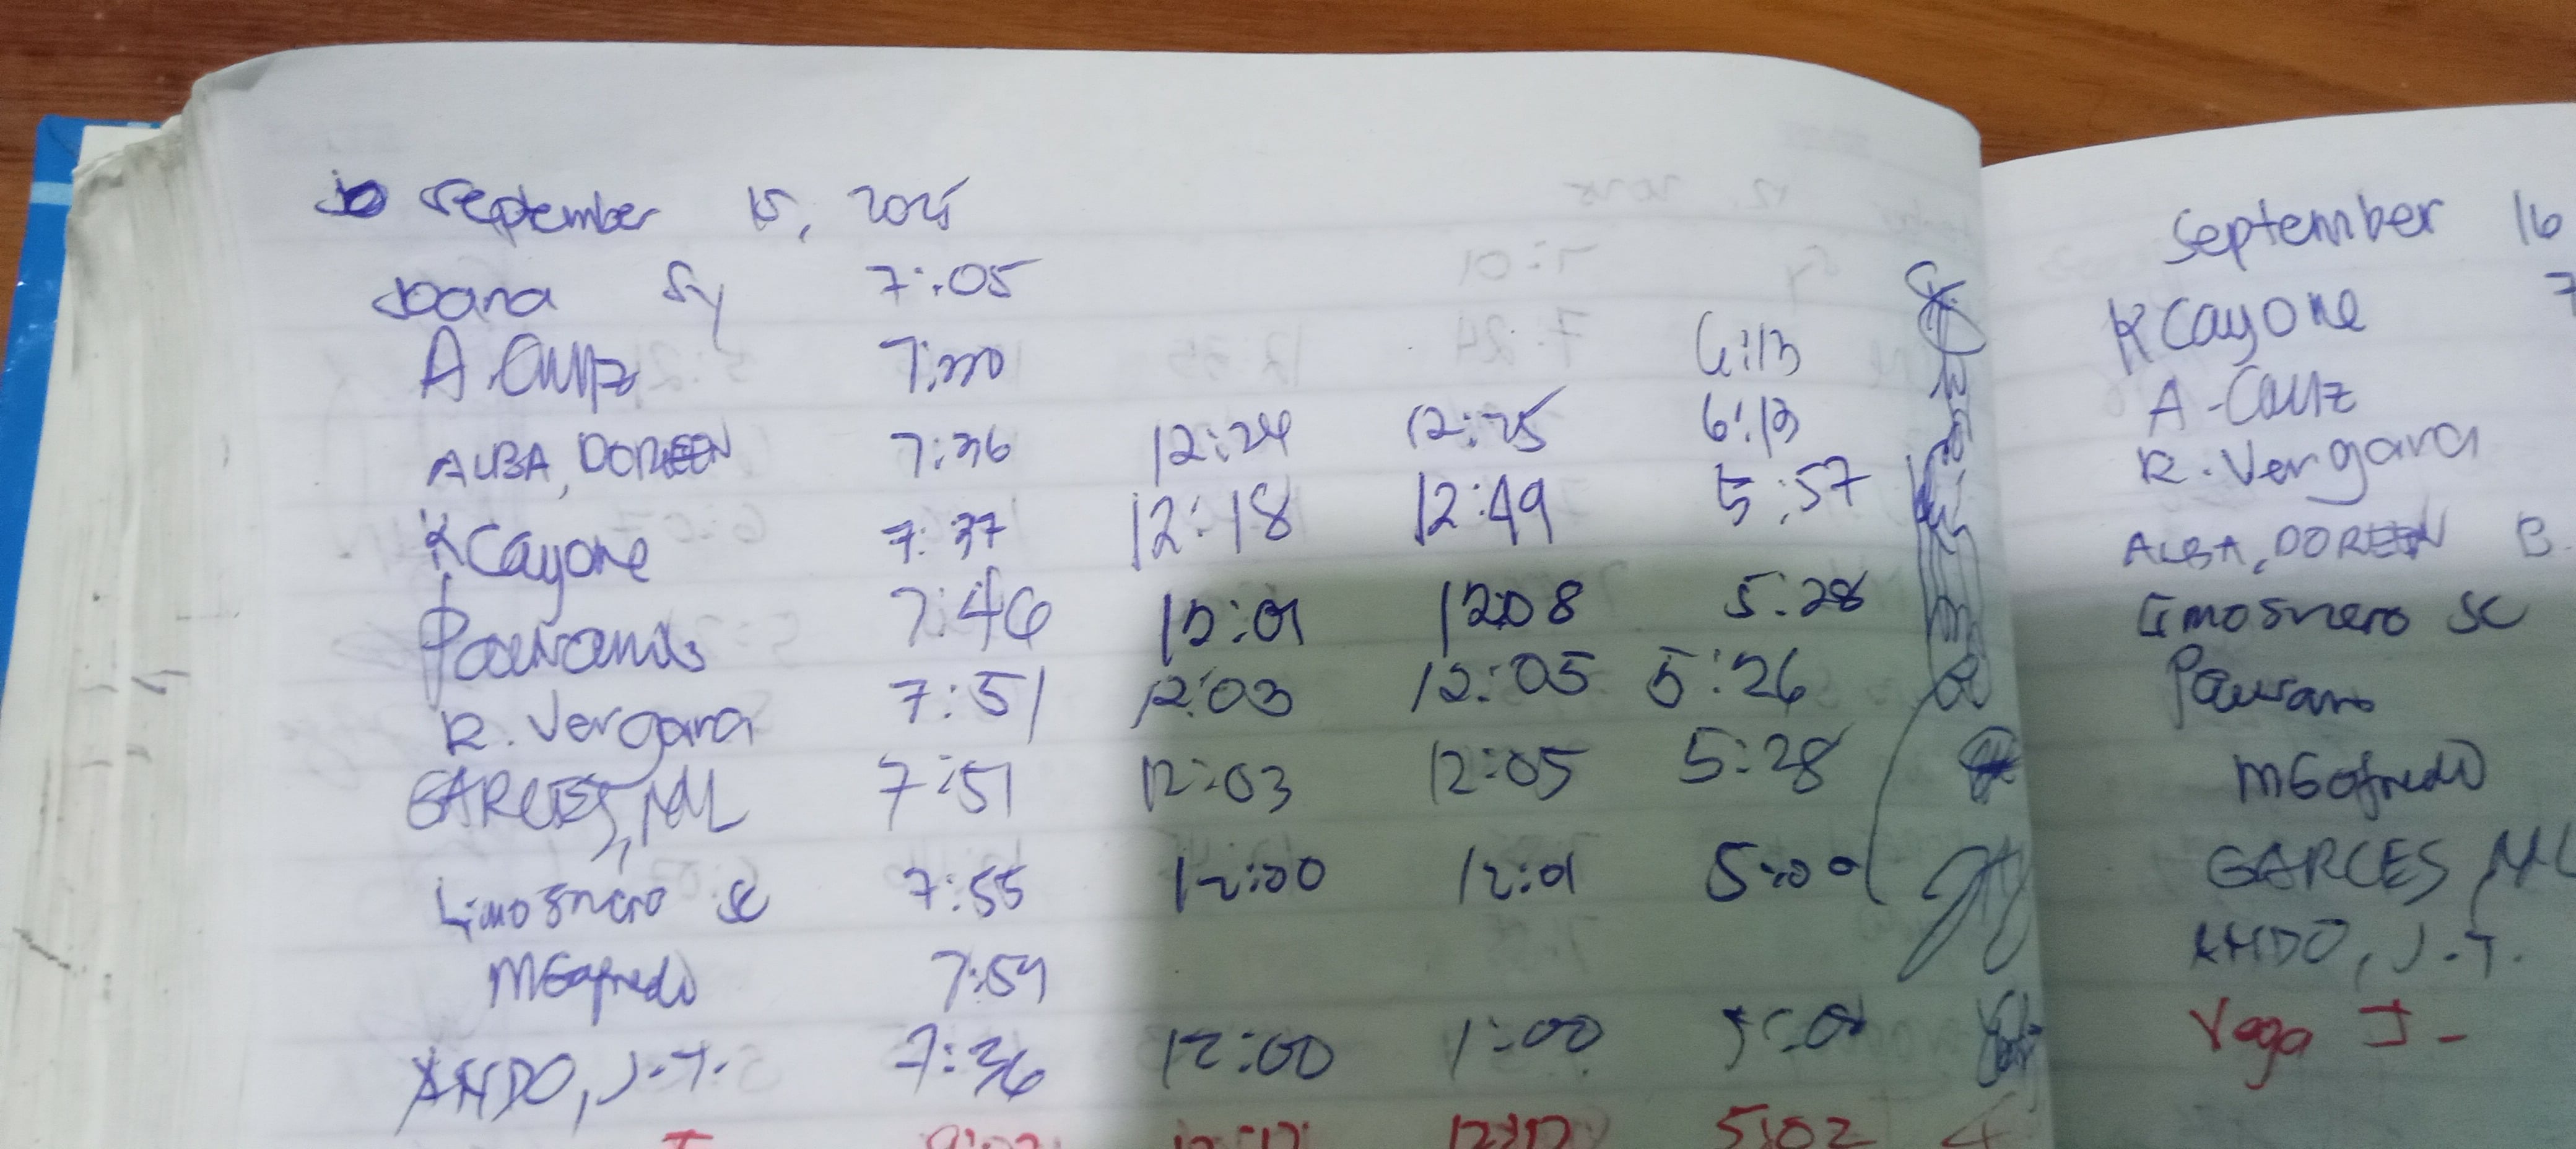 September 15, 2025
Joana Sy 7:05
A. Cruz 7:30 6:13
ALBA, DOREEN 7:36 12:24 12:25 6:13
K Cayone 7:37 12:18 12:49 5:57
7:46 12:01 12:08 5:28
R. Vergara 7:51 12:03 12:05 5:26
GARCES, ML 7:51 12:03 12:05 5:28
Limosnero SC 7:55 12:00 12:01 5:00
MGofredo 7:59
ANDO, J.T. 7:36 12:00 1:00
5:02
September 16
K Cayone 7
A. Cruz
R. Vergara
ALBA, DOREEN B.
Limosnero SC
MGofredo
GARCES, ML
ANDO, J.T.
Vega J-